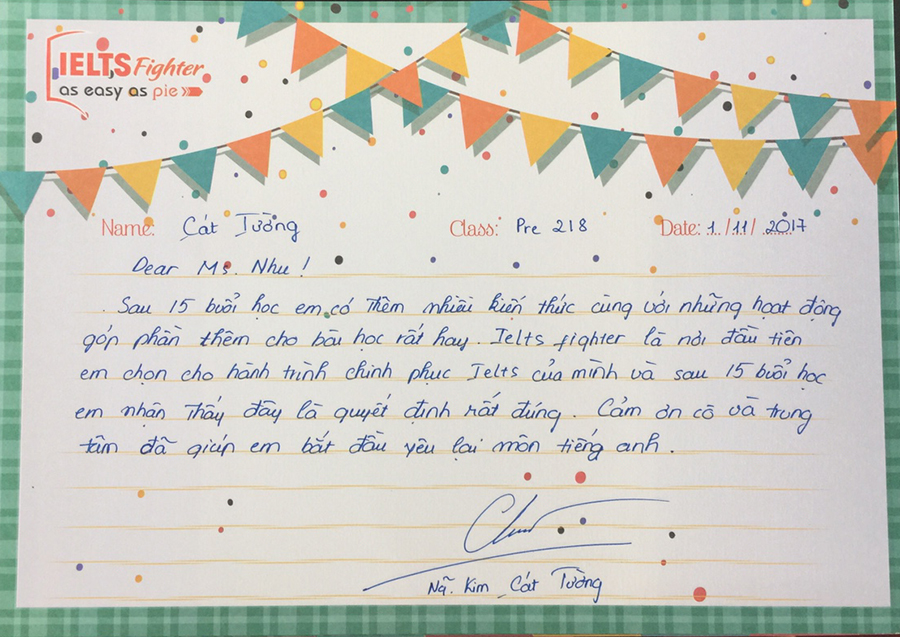 IELTS Fighter
as easy as pie
Name: Cát Tường Class: Pre 218 Date: 1./11/.2017
Dear Ms. Nhu !
Sau 15 buổi học em có thêm nhiều kiến thức cùng với những hoạt động
góp phần thêm cho bài học rất hay. Ielts fighter là nơi đầu tiên
em chọn cho hành trình chinh phục Ielts của mình và sau 15 buổi học
em nhận thấy đây là quyết định rất đúng. Cảm ơn cô và trung
tâm đã giúp em bắt đầu yêu lại môn tiếng anh.
Ng̃. Kim Cát Tường